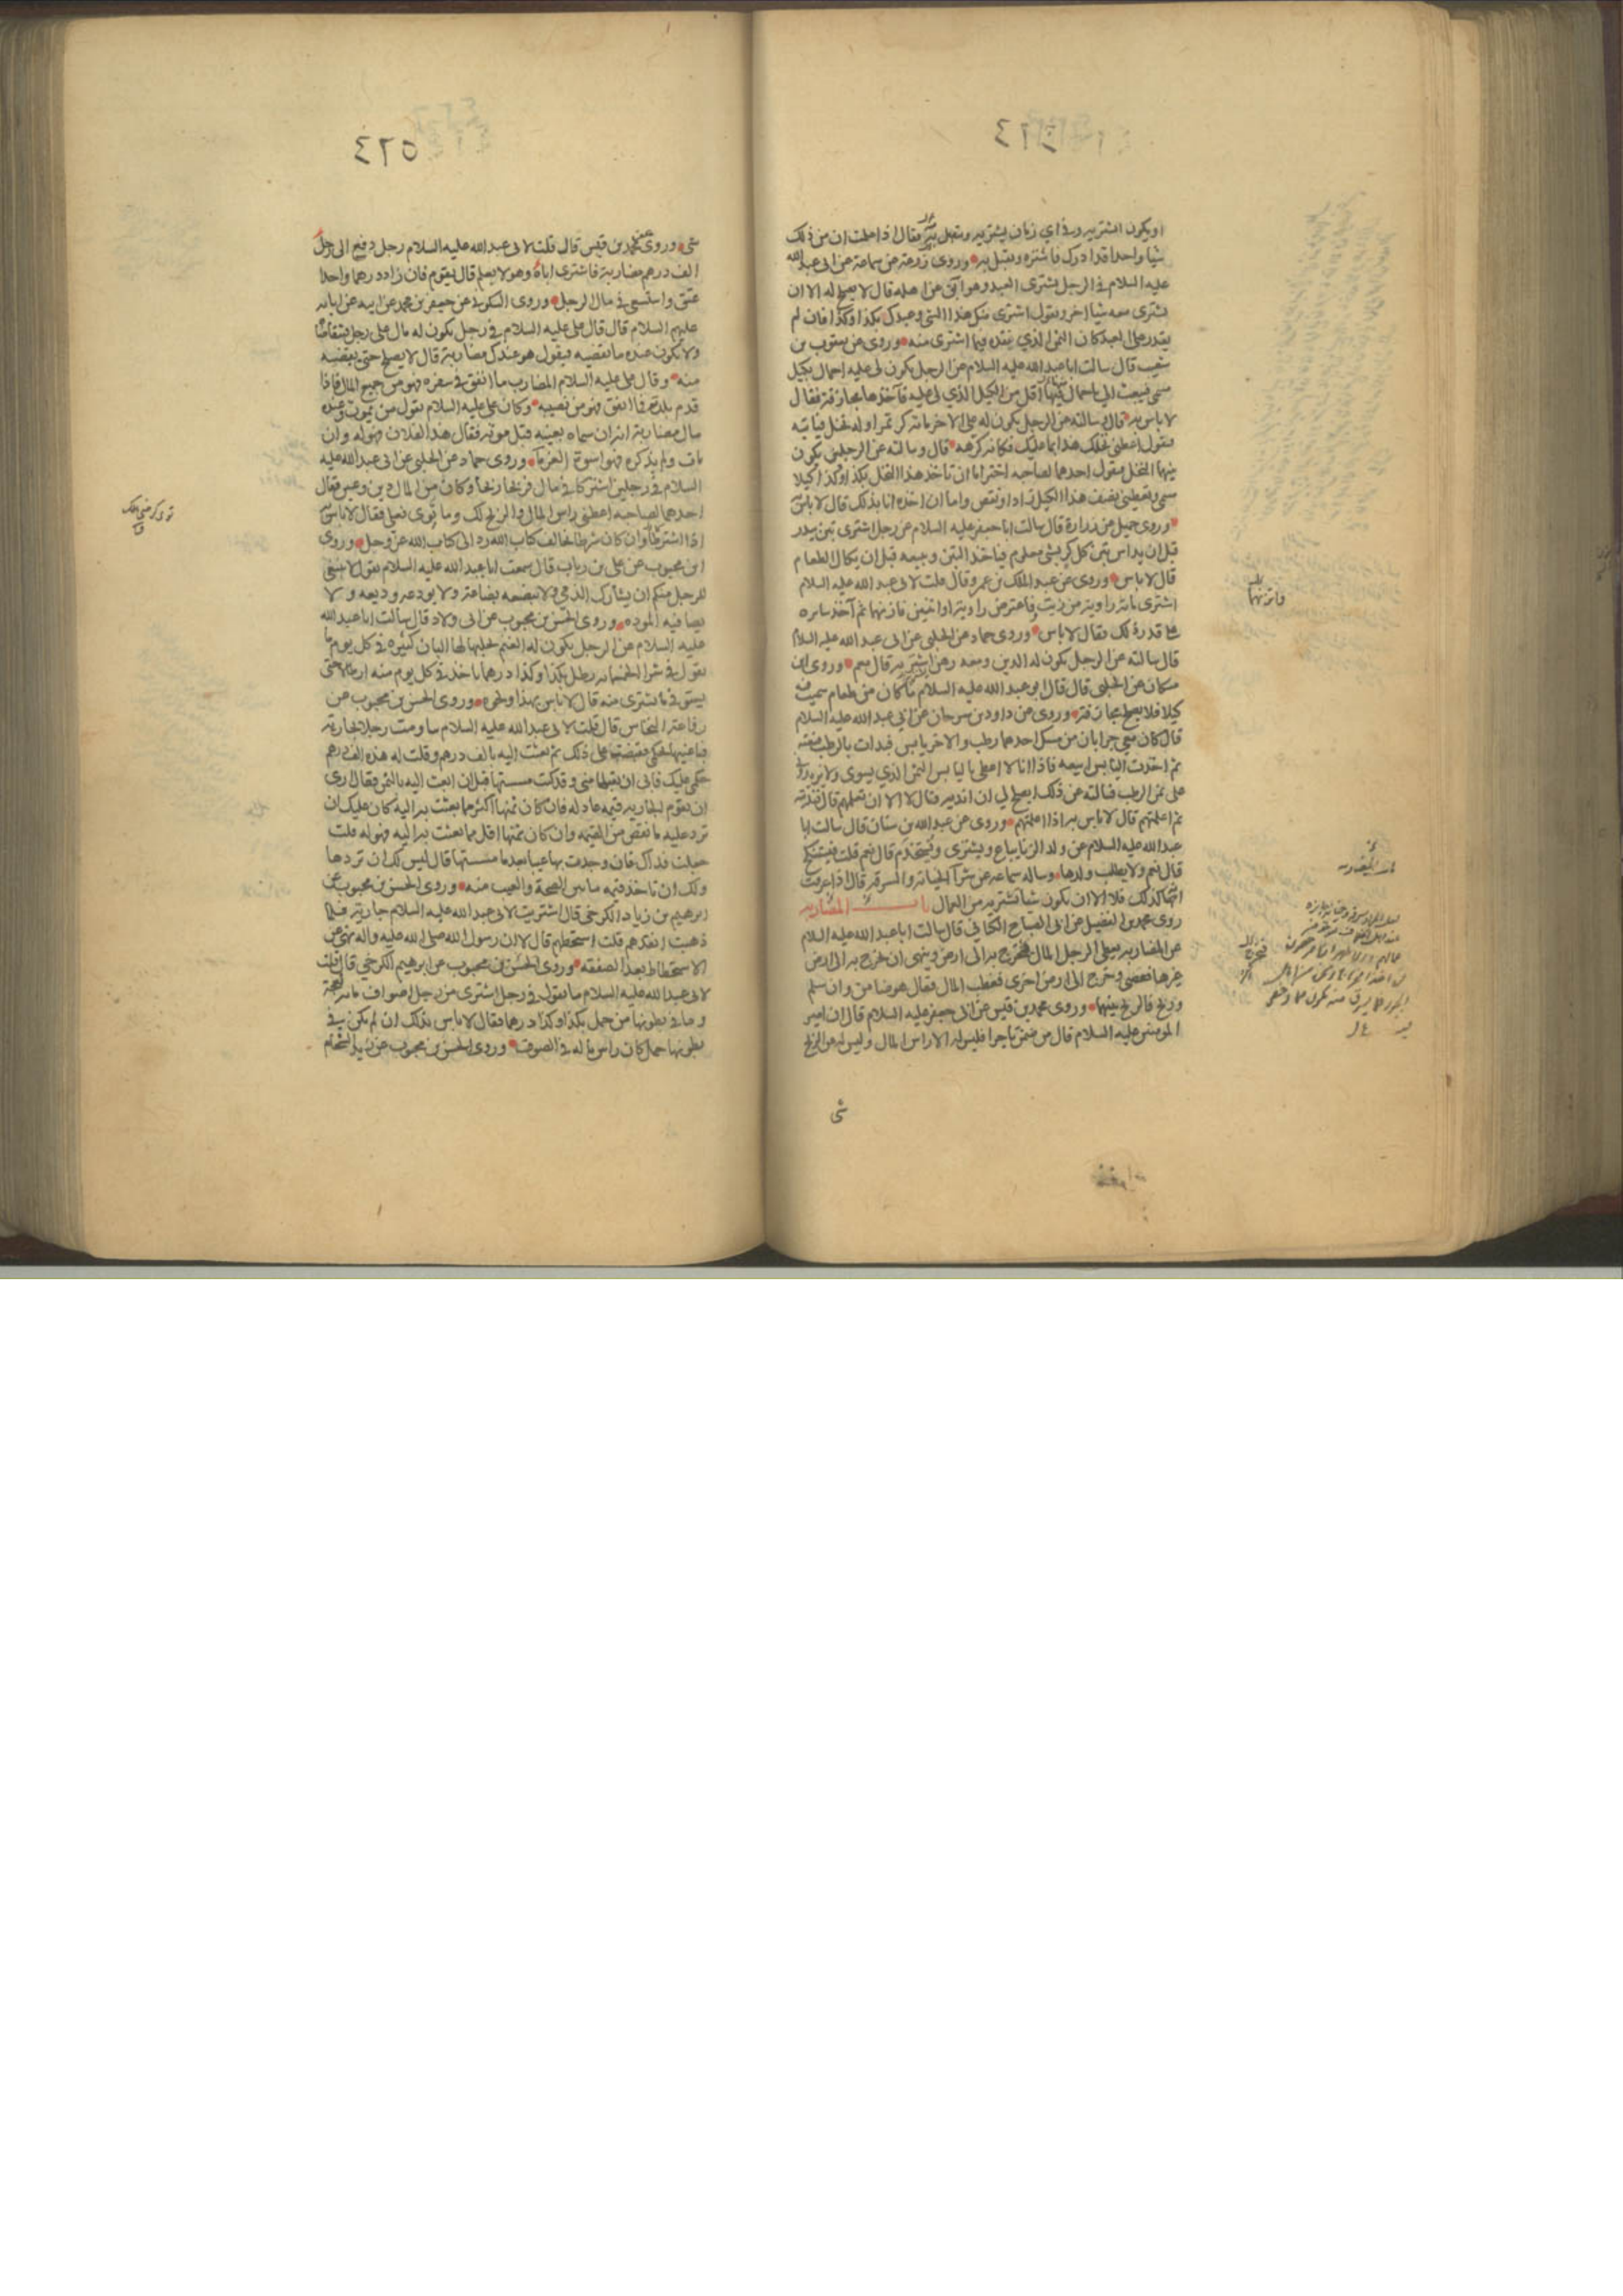 او يكون اشتريه وفي اي زمان يشتريه ويتقبل به فقال اذا علمت ان من ذلك
شيا واحدا قد ادرك فاشتره وتقبل به وروى زرعة عن سماعة عن ابى عبد الله
عليه السلام فى الرجل يشترى العبد وهو آبق عن اهله قال لا يصلح له الا ان
يشترى معه شيا اخر ويقول اشترى منك هذا الشئ وعبدك بكذا وكذا فان لم
يقدر على العبد كان الثمن الذي نقده فيما اشترى منه وروى عن يعقوب بن
شعيب قال سالت ابا عبد الله عليه السلام عن الرجل يكون لى عليه احمال بكيل
مسمى فيبعث الى باحمال فيها اقل من الكيل الذي لى عليه فآخذها مجازفة فقال
لا باس به قال وسالته عن الرجل يكون له على الاخر مائة كر تمر اوله نخل فياتيه
فيقول اعطنى نخلك هذا بما عليك فكانه كرهه قال وسالته عن الرجلين يكون
بينهما النخل فيقول احدهما لصاحبه اختر اما ان تاخذ هذا النخل بكذا وكذا كيلا
مسمى وتعطينى نصف هذا الكيل زاد او نقص واما ان اخذه انا بذلك قال لا باس
وروى جميل عن زرارة قال سالت ابا جعفر عليه السلام عن رجل اشترى تبن بيدر
قبل ان يداس تبن كل كر بشئ معلوم فياخذ التبن ويبيعه قبل ان يكال الطعام
قال لا باس وروى عن عبد الملك بن عمرو قال قلت لابى عبد الله عليه السلام
اشترى مائة راوية من زيت فاعترض راوية او اثنتين فازنهما ثم آخذ سايره
على قدر ذلك فقال لا باس وروى حماد عن الحلبي عن ابى عبد الله عليه السلام
قال سالته عن الرجل يكون له الدين ومعه رهن اشتريه قال نعم وروى ابن
مسكان عن الحلبي قال قال ابو عبد الله عليه السلام ما كان من طعام سميت فيه
كيلا فلا يصلح مجازفة وروى عن داود بن سرحان عن ابى عبد الله عليه السلام
قال كان معى جرابان من مسك احدهما رطب والاخر يابس فبدات بالرطب فبعته
ثم اخذت اليابس ابيعه فاذا انا لا اعطى باليابس الثمن الذي يسوى ولا يزيدونى
على ثمن الرطب فسالته عن ذلك ايصلح لى ان انديه فقال لا الا ان تعلمهم قال فنديته
ثم اعلمتهم قال لا باس به اذا اعلمتهم وروى عن عبد الله بن سنان قال سالت ابا
عبد الله عليه السلام عن ولد الزنا يباع ويشترى ويستخدم قال نعم قلت فيستنكح
قال نعم ولا يطلب ولدها وساله سماعة عن شرا الخيانة والسرقة قال اذا عرفت
انها كذلك فلا الا ان يكون شيا تشتريه من العمال باب المضاربه
روى محمد بن الفضيل عن ابى الصباح الكنانى قال سالت ابا عبد الله عليه السلام
عن المضاربه يعطى الرجل المال فيخرج به الى ارض وينهى ان يخرج به الى ارض
غيرها فعصى وخرج الى ارض اخرى فعطب المال فقال هو ضامن وان سلم
وربح فالربح بينهما وروى محمد بن قيس عن ابى جعفر عليه السلام قال ان امير
المومنين عليه السلام قال من ضمن تاجرا فليس له الا راس المال وليس له من الربح
شى
٥٦٤
شى وروى محمد بن قيس قال قلت لابى عبد الله عليه السلام رجل دفع الى رجل
الف درهم مضاربة فاشترى اباه وهو لا يعلم قال يقوم فان زاد درهما واحدا
عتق واستسعى فى مال الرجل وروى السكونى عن جعفر بن محمد عن ابيه عن ابائه
عليهم السلام قال قال على عليه السلام فى رجل يكون له مال على رجل يتقاضا
ولا يكون عنده ما يقضيه فيقول هو عندك مضاربة قال لا يصلح حتى يقبضه
منه وقال على عليه السلام المضارب ما انفق فى سفره فهو من جميع المال فاذا
قدم بلدته فما انفق فهو من نصيبه وكان على عليه السلام يقول من يموت وعنده
مال مضاربة انه ان سماه بعينه قبل موته فقال هذا لفلان فهو له وان
مات ولم يذكره فهو اسوة الغرما وروى حماد عن الحلبى عن ابى عبد الله عليه
السلام فى رجلين اشتركا فى مال فربحا ربحا وكان من المال دين وعين فقال
احدهما لصاحبه اعطنى راس المال والربح لك وما توى فعلى فقال لا باس به
اذا اشترطا وان كان شرطا يخالف كتاب الله رد الى كتاب الله عز وجل وروى
ابن محبوب عن على بن رياب قال سمعت ابا عبد الله عليه السلام يقول لا ينبغى
للرجل منكم ان يشارك الذمى ولا يبضعه بضاعة ولا يودعه وديعه ولا
يصافيه الموده وروى الحسن بن محبوب عن ابى ولاد قال سالت ابا عبد الله
عليه السلام عن الرجل يكون له الغنم يحلبها لها البان كثيره فى كل يوم ما
تقول فى شرا الخمسمائه رطل بكذا وكذا درهما ياخذ فى كل يوم منه ارطالا حتى
يستوفى ما يشترى منه قال لا باس بهذا ونحوه وروى الحسن بن محبوب عن
رفاعة النخاس قال قلت لابى عبد الله عليه السلام ساومت رجلا بجارية
فباعنيها بحكمى فقبضتها على ذلك ثم بعثت اليه بالف درهم وقلت له هذه الف درهم
حكمى عليك فابى ان يقبلها منى وقد كنت مسستها قبل ان ابعث اليه بالثمن فقال ارى
ان تقوم الجاريه قيمه عادله فان كان ثمنها اكثر مما بعثت به اليه كان عليك ان
ترد عليه ما نقص من القيمه وان كان ثمنها اقل مما بعثت به اليه فهو له قلت
جعلت فداك فان وجدت بها عيبا بعد ما مسستها قال ليس لك ان تردها
ولك ان تاخذ قيمه ما بين الصحة والعيب منه وروى الحسن بن محبوب عن
ابرهيم بن زياد الكرخى قال اشتريت لابى عبد الله عليه السلام جارية فلما
ذهبت انقدهم قلت استحطهم قال لا ان رسول الله صلى الله عليه واله نهى عن
الاستحطاط بعد الصفقه وروى الحسن بن محبوب عن ابرهيم الكرخى قال قلت
لابى عبد الله عليه السلام ما تقول فى رجل اشترى من رجل اصواف مائة نعجة
وما فى بطونها من حمل بكذا وكذا درهما فقال لا باس بذلك ان لم يكن فى
بطونها حمل كان راس ماله فى الصوف وروى الحسن بن محبوب عن زيد الشحام